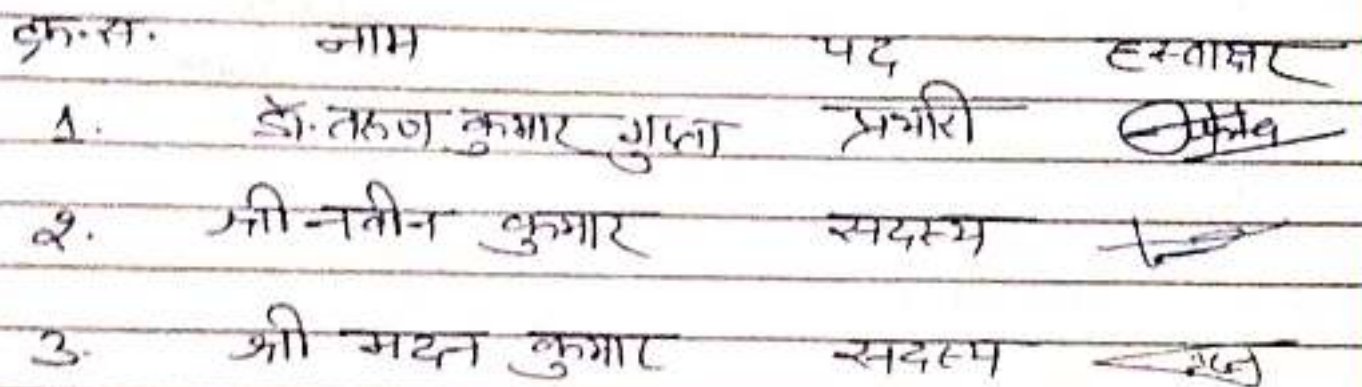 क्र.सं. नाम पद हस्ताक्षर
1. डॉ. तरुण कुमार गुप्ता प्रभारी
2. श्री नवीन कुमार सदस्य
3. श्री मदन कुमार सदस्य